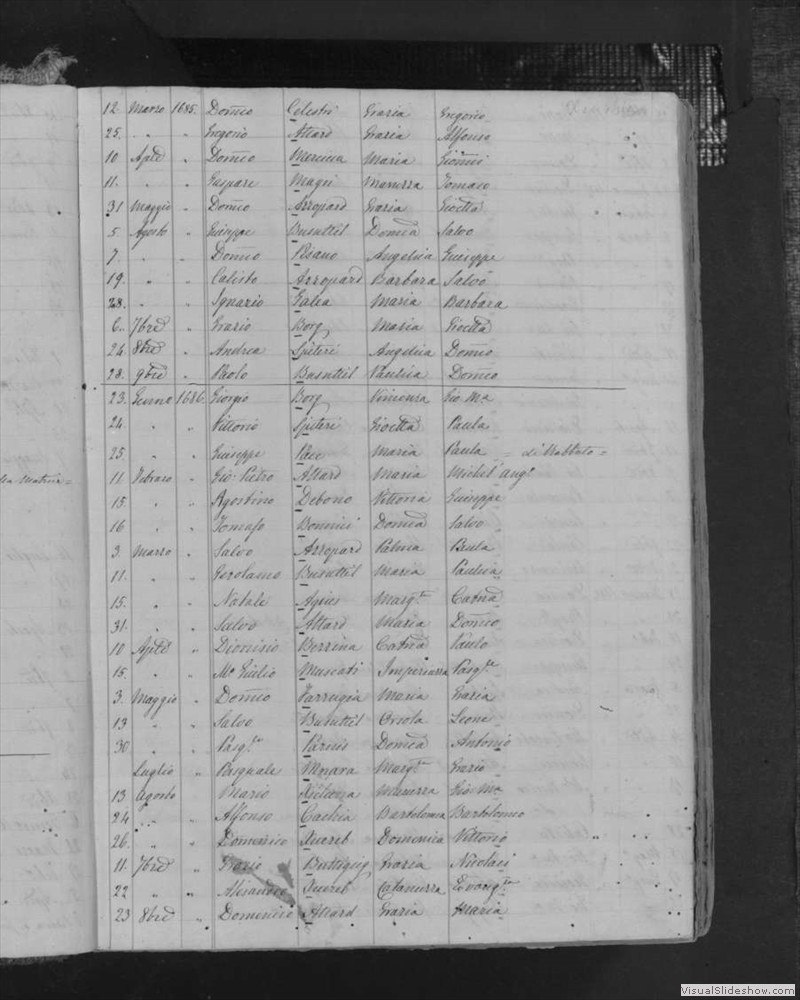 12. Marzo 1685. Domco Celestri Grazia Gregorio
25. " " Gregorio Attard Grazia Alfonso
10 Aple " Domco Mercieca Maria
11. " " Gaspare Magri Maruzza Tomaso
31 Maggio " Domco Azzopard Grazia Gioetta
5. Agosto " Giuseppe Busuttil Domca Salvo
7. " " Domco Pisano Angelica Giuseppe
19. " " Calisto Azzopard Barbara Salvo
28. " " Ignazio Galea Maria Barbara
6.. 7bre " Grazio Borg Maria Gioetta
24. 8bre " Andrea Spiteri Angelica Domco
28. 9bre " Paolo Busuttil Paulica Domco
23. Genno 1686. Giorgio Borg Vincenza Gio Ma
24 " " Vittorio Spiteri Gioetta Paula
25. " " Giuseppe Pace Maria Paula = di Rabbato =
11 Febraro " Gio: Pietro Attard Maria Michel' Ang.
15. " " Agostino Debono Vittoria Giuseppe
16 " " Tomaso Bonnici Domca Salvo
3. Marzo " Salvo Azzopard Palma Paula
11. " " Gerolamo Busuttil Maria Paulica
15. " " Natale Agius Marg.ta Catna
31. " " Salvo Attard Maria Domco
10 Aple " Dionisio Bezzina Catna Paulo
15. " " Mo Giulio Muscati Imperiuzza Pasq.le
3. Maggio " Domco Farrugia Maria Grazia
13 " " Salvo Busuttil Orsola Leone
30 " " Pasq.le Parnis Domca Antonio
Luglio " Pasquale Marg.ta Grazio
13 Agosto " Ilario Maruzza Gio Ma
24 " " Alfonso Cachia Bartolomea Bartolomeo
26. " " Domenico Xuereb Domenica Vittorio
11. 7bre " Grazio Buttigieg Grazia Nicolaci
22 " " Alisandro Xuereb Catanuzza Evang.ta
23 8bre " Domenico Attard Grazia Maria
VisualSlideshow.com